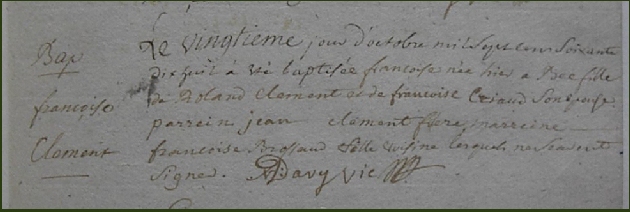 Bap
françoise
Clement
Le vingtieme jour d'octobre mil sept cent soixante
dix huit à été baptisée françoise née hier a fille
de Roland Clement et de francoise son epouse
parrein jean clement frere marreine
francoise fille lesquels ne scavent
signer. Davy vic